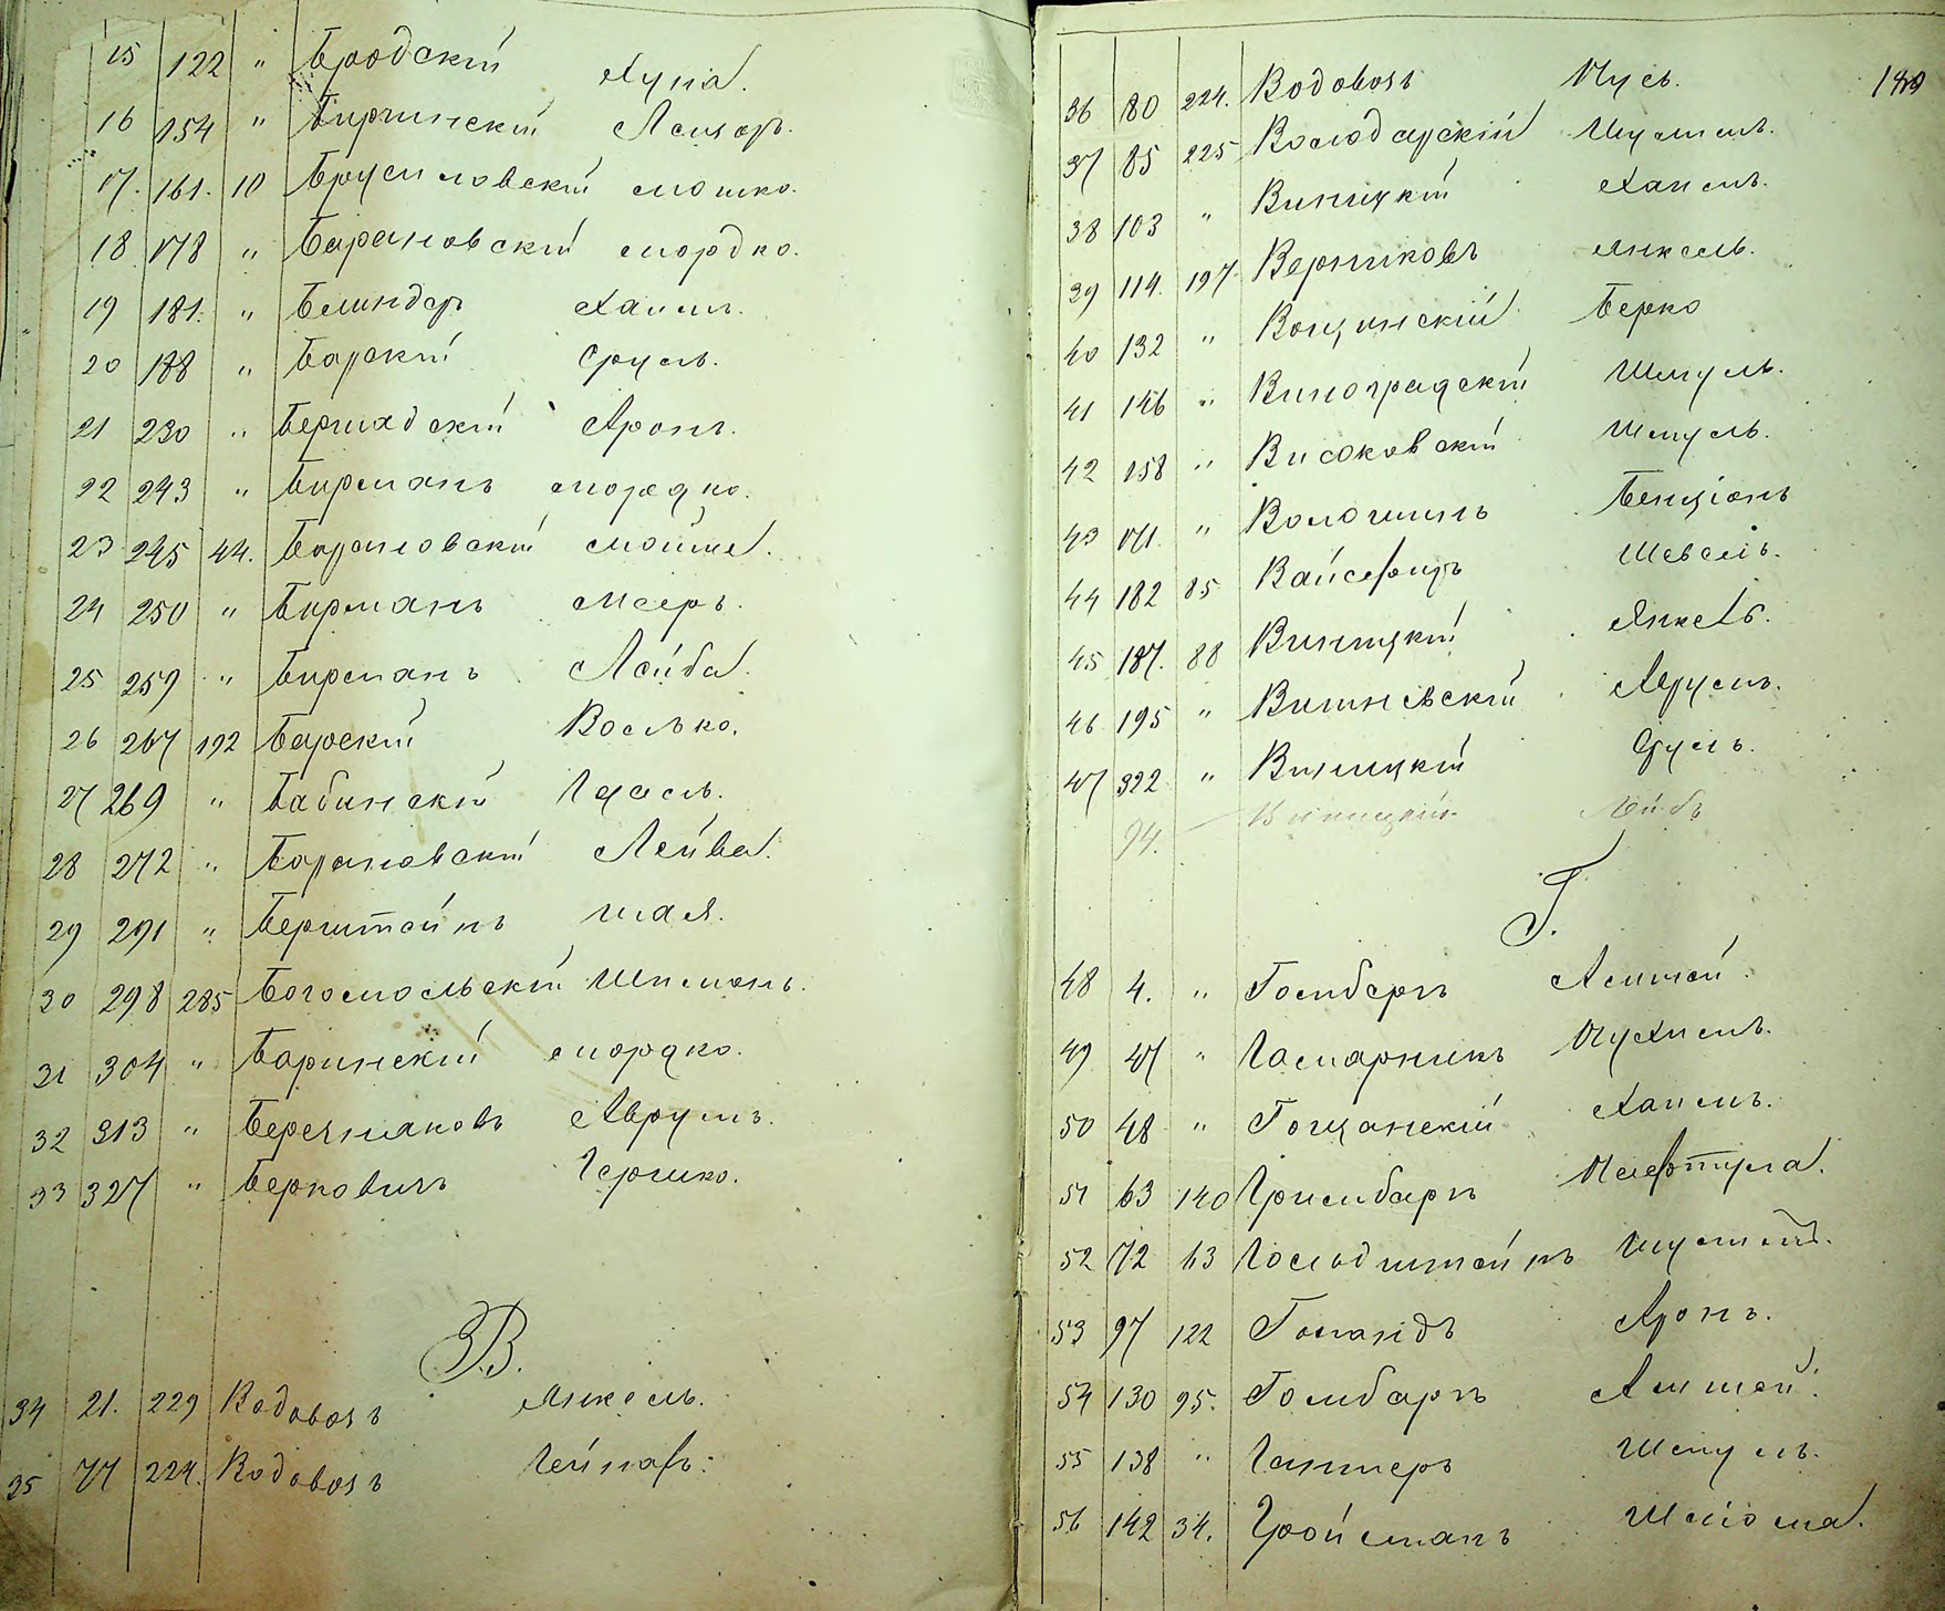 15 122 " Бродскій Хуна.
16 154 " Бирчинскій Лейзоръ.
17. 161. 10 Брусиловскій Мошко.
18 178 " Барановскій Мордко.
19 181. " Блиндеръ Хаимъ.
20 188 " Барскій Сруль.
21 230 " Бершадскій Аронъ.
22 243 " Бирманъ Мордко.
23 245 44. Барановскій Мойше.
24 250 " Бирманъ Мееръ.
25 259 " Бирманъ Лейба.
26 267 192 Барскій Волько.
27 269 " Бабинскій
28 272 " Барановскій Лейба.
29 291 " Берштейнъ Шая.
30 298 285 Богомольскій Шимонъ.
31 304 " Баринскій Мордко.
32 313 " Березняковъ Аврумъ.
33 327 " Берковичъ Гершко.
В.
34 21. 229 Водовозъ Янкель.
35 77 224. Водовозъ Гейнахъ.
180
36 80 224. Водовозъ Нусь.
37 85 225 Володарскій Шулимъ.
38 103 " Виницкій Хаимъ.
39 114. 197 Верниковъ Янкель.
40 132 " Вощинскій Берко
41 146 " Виноградскій Шмуль.
42 158 " Високовскій Шмуль.
43 171. " Волошинъ Бенціонъ
44 182 85 Вайсфицъ Шевель.
45 187. 88 Виницкій Янкель.
46 195 " Вишневскій Аврумъ.
47 322 " Виницкій Сруль.
94. Виницкій Лейбъ
Г.
48 4. " Гомбергъ
49 47 " Гамарникъ Нухимъ.
50 48 " Гощанскій Хаимъ.
51 63 140 Гринбергъ Нафтула.
52 72 63 Гольдштейнъ
53 97 122 Голандъ Аронъ.
54 130 95. Гомбергъ
55 138 " Гитерь Шмуль.
56 142 34. Гройсманъ Шлиома.